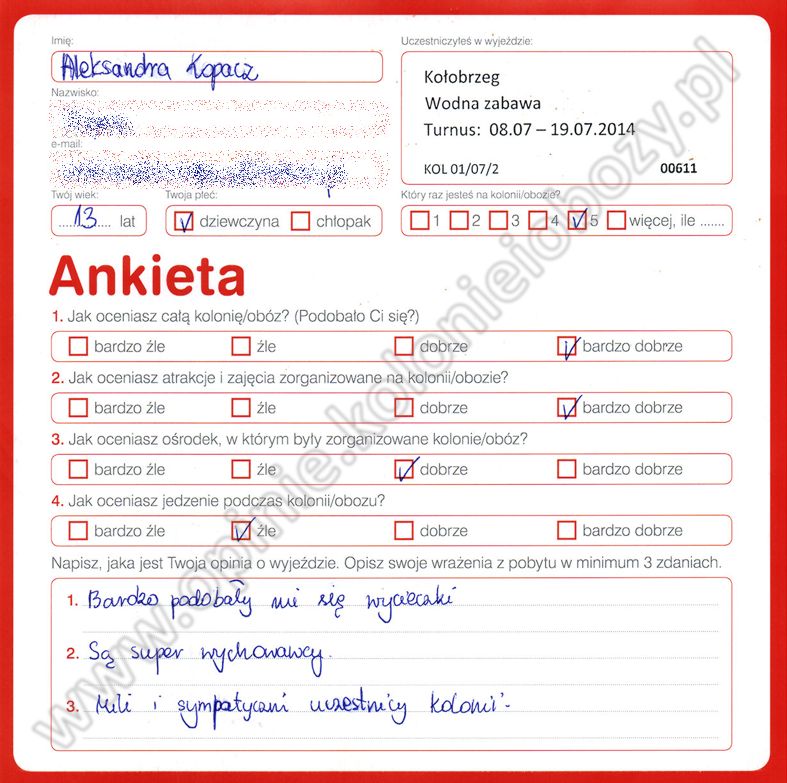 Imię:
Aleksandra Kopacz
Nazwisko:
e-mail:
Twój wiek:
13 lat
Twoja płeć:
dziewczyna chłopak
Uczestniczyłeś w wyjeździe:
Kołobrzeg
Wodna zabawa
Turnus: 08.07 – 19.07.2014
KOL 01/07/2 00611
Który raz jesteś na kolonii/obozie?
1 2 3 4 5 więcej, ile .......
Ankieta
1. Jak oceniasz całą kolonię/obóz? (Podobało Ci się?)
bardzo źle źle dobrze bardzo dobrze
2. Jak oceniasz atrakcje i zajęcia zorganizowane na kolonii/obozie?
bardzo źle źle dobrze bardzo dobrze
3. Jak oceniasz ośrodek, w którym były zorganizowane kolonie/obóz?
bardzo źle źle dobrze bardzo dobrze
4. Jak oceniasz jedzenie podczas kolonii/obozu?
bardzo źle źle dobrze bardzo dobrze
Napisz, jaka jest Twoja opinia o wyjeździe. Opisz swoje wrażenia z pobytu w minimum 3 zdaniach.
1. Bardzo podobały mi się wycieczki
2. Są super wychowawcy.
3. Mili i sympatyczni uczestnicy kolonii.
www.opinie.kolonieiobozy.pl